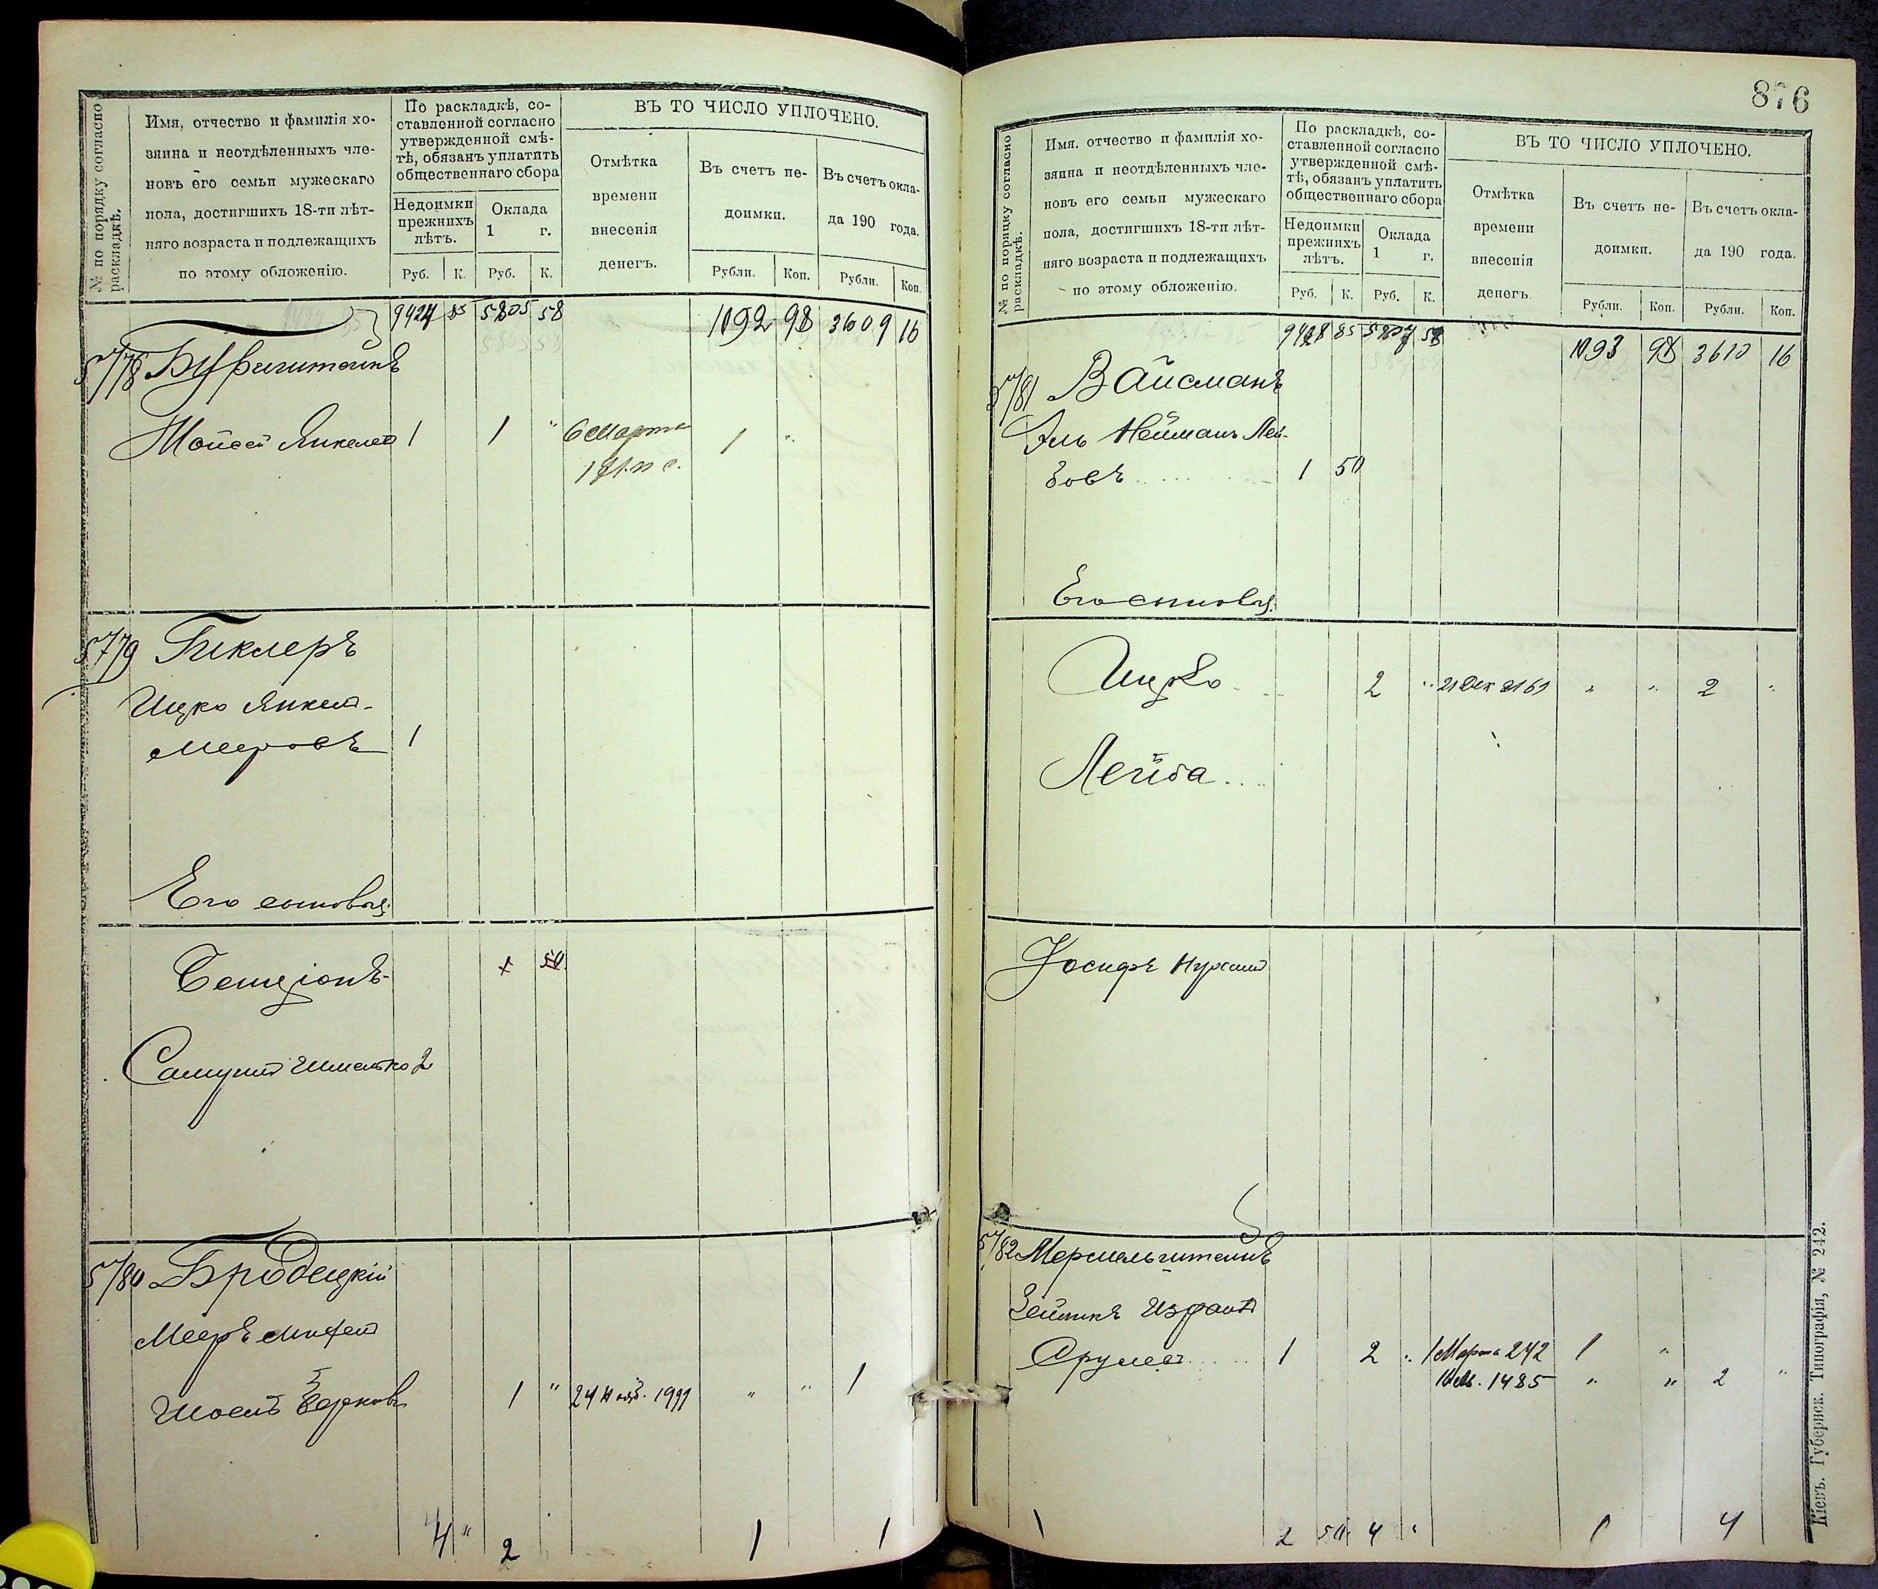 № по порядку согласно раскладкѣ.
Имя, отчество и фамилія хо-
зяина и неотдѣленныхъ чле-
новъ его семьи мужескаго
пола, достигшихъ 18-ти лѣт-
няго возраста и подлежащихъ
по этому обложенію.
По раскладкѣ, со-
ставленной согласно
утвержденной смѣ-
тѣ, обязанъ уплатить
общественнаго сбора
Недоимки
прежнихъ
лѣтъ.
Оклада
1 г.
Руб. К. Руб. К.
ВЪ ТО ЧИСЛО УПЛОЧЕНО.
Отмѣтка
времени
внесенія
денегъ.
Въ счетъ не-
доимки.
Въ счетъ окла-
да 190 года.
Рубли. Коп. Рубли. Коп.
9424 85 5805 58 1092 98 3609 16
5778
Мойсей Янкелев 1 1 " 6 Марта 1 "
5779 Гиклеръ
Ицко Янкел-
Мееровъ 1
Его сыновья:
Бенціонъ 1 50
Самуил Шмелько 2
5780 Бродецкій
Мееръ
Иосель Берков 1 " 24 Нояб. 1999 " " 1
4 " 2 1 1
876
№ по порядку согласно раскладкѣ.
Имя, отчество и фамилія хо-
зяина и неотдѣленныхъ чле-
новъ его семьи мужескаго
пола, достигшихъ 18-ти лѣт-
няго возраста и подлежащихъ
по этому обложенію.
По раскладкѣ, со-
ставленной согласно
утвержденной смѣ-
тѣ, обязанъ уплатить
общественнаго сбора
Недоимки
прежнихъ
лѣтъ.
Оклада
1 г.
Руб. К. Руб. К.
ВЪ ТО ЧИСЛО УПЛОЧЕНО.
Отмѣтка
времени
внесенія
денегъ.
Въ счетъ не-
доимки.
Въ счетъ окла-
да 190 года.
Рубли. Коп. Рубли. Коп.
9428 85 5807 58 1093 98 3610 16
5781 Вайсманъ
Эль Нейманъ Лей-
бовъ 1 50
Его сыновья:
Ицко 2 " 21 Дек 2161 " " 2 "
Лейба
Іосифъ
5782
Зейликъ Израиль
Срулев 1 2 " 1 Марта 242 1 "
1485 " " 2 "
1 2 50 4 " 1 4
Кіевъ. Губернск. Типографія, № 242.